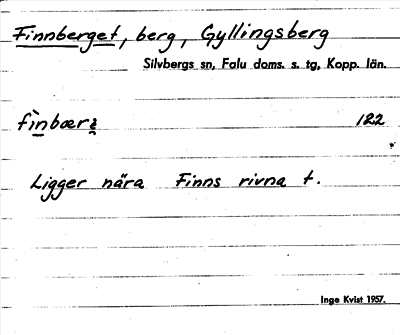 Finnberget, berg, Gyllingsberg
Silvbergs sn, Falu doms. s. tg, Kopp. län.
fìnbærə̣ 122
Ligger nära Finns rivna t.
Inge Kvist 1957.